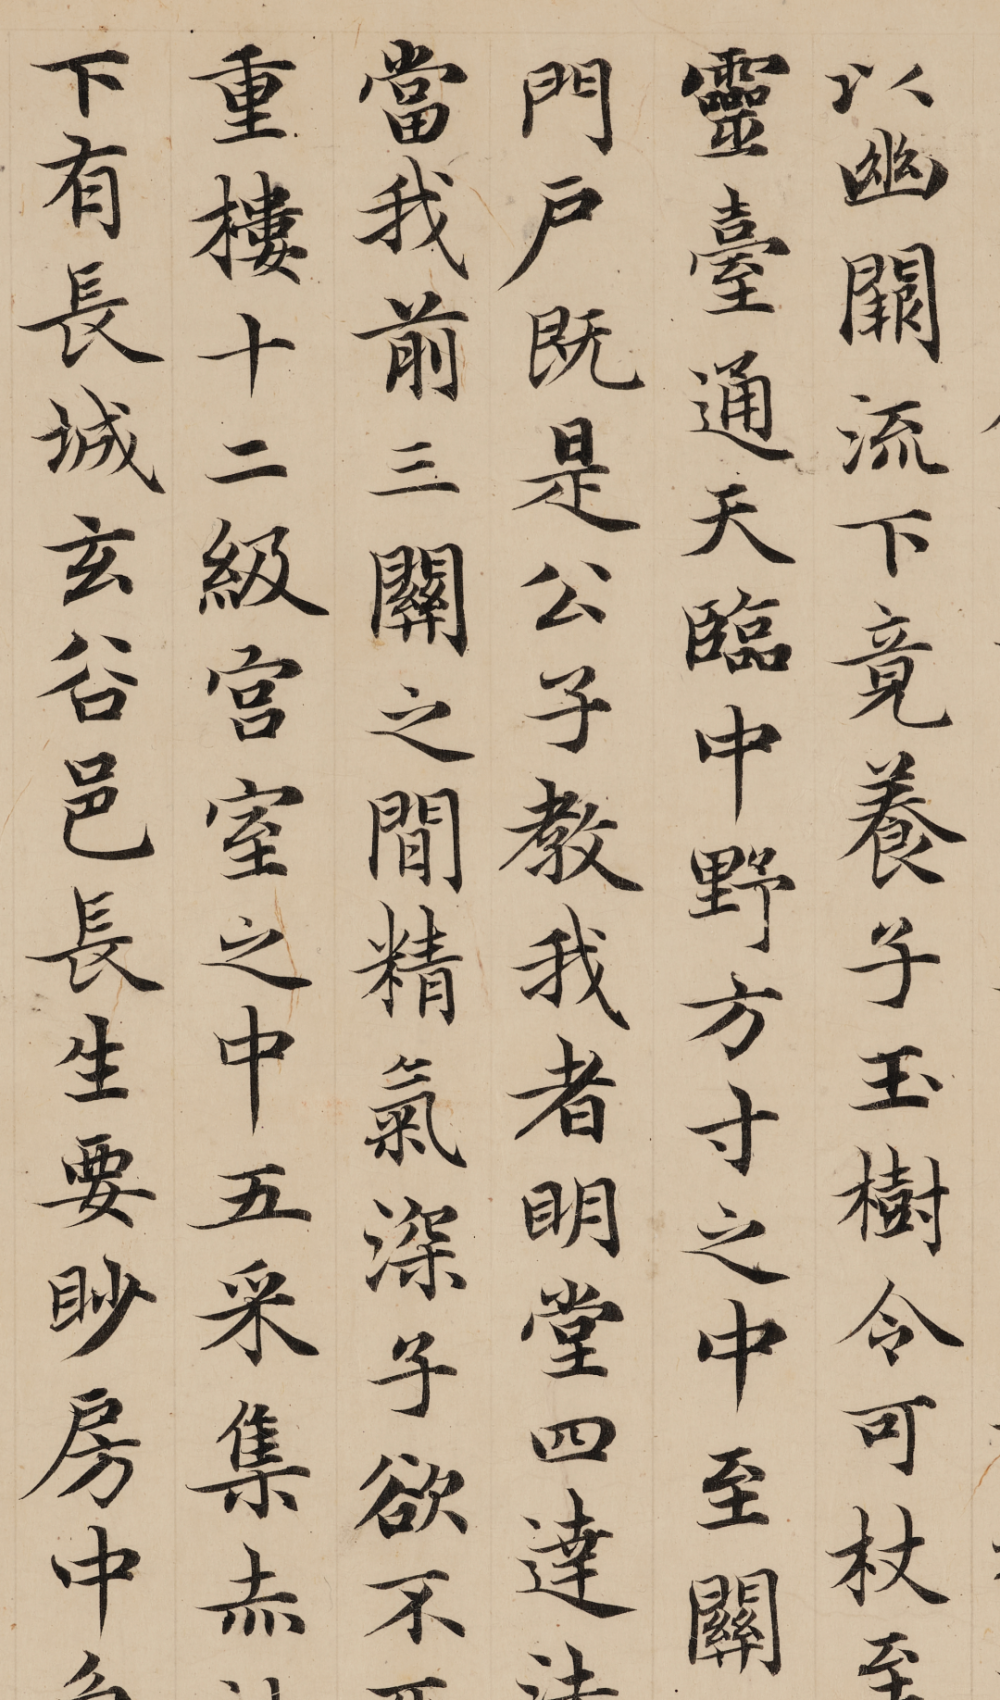 以幽闕流下竟養子玉樹令可杖至
靈臺通天臨中野方寸之中至關
門戶既是公子教我者明堂四達法
當我前三關之間精氣深子欲不
重樓十二級宮室之中五采集赤
下有長城玄谷邑長生要眇房中